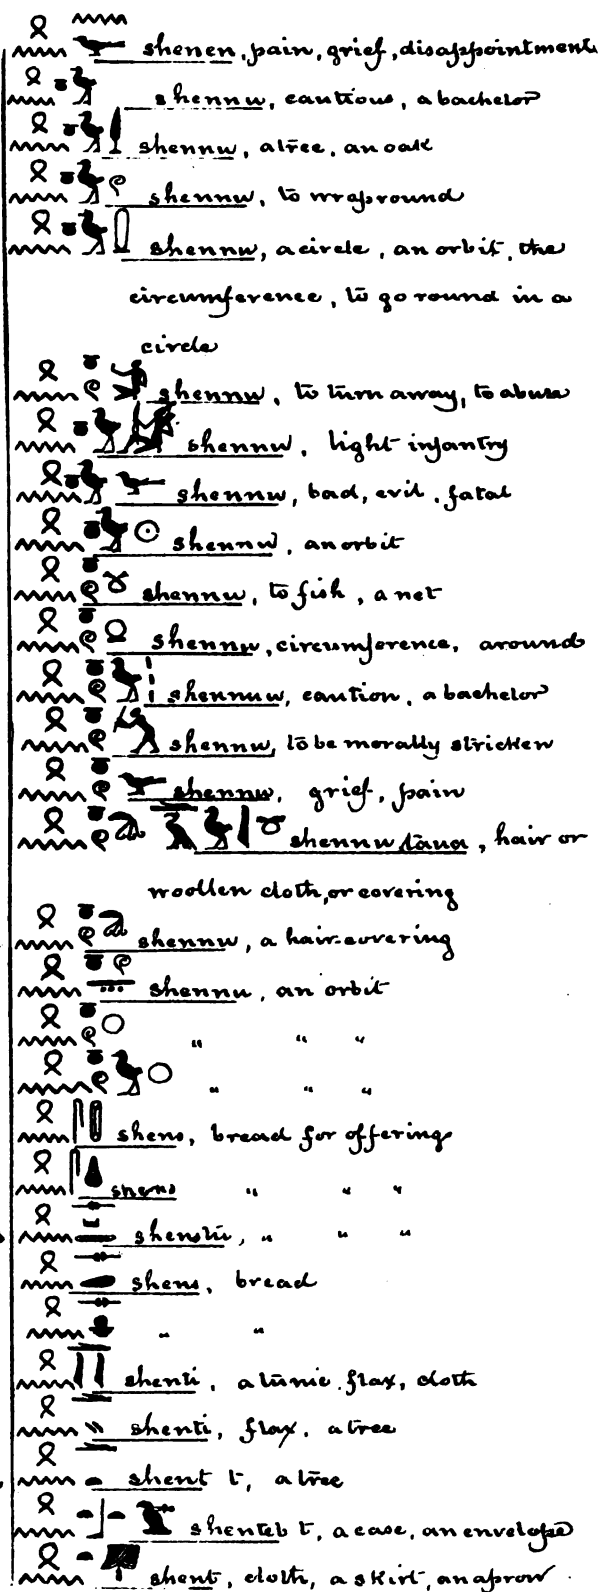 shenen, pain, grief, disappointment
shennu, cautious, a bachelor
shennu, a tree, an oak
shennu, to wrap round
shennu, a circle, an orbit, the
circumference, to go round in a
circle
shennu, to turn away, to abuse
shennu, light infantry
shennu, bad, evil, fatal
shennu, an orbit
shennu, to fish, a net
shennu, circumference, around
shennuu, caution, a bachelor
shennu, to be morally stricken
shennu, grief, pain
shennu taua, hair or
woollen cloth, or covering
shennu, a hair-covering
shennu, an orbit
" " "
" " "
shens, bread for offerings
shens " " "
shenstu, " " "
shens, bread
" "
shenti, a tunic, flax, cloth
shenti, flax, a tree
shent t, a tree
shenteb t, a case, an envelope
shent, cloth, a skirt, an apron